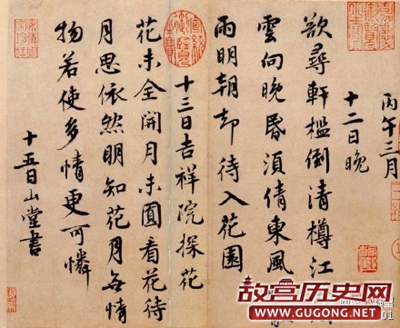 丙午三月
十二日晚
欲尋軒檻倒清樽江
雲向晚昏須倩東風
雨明朝却待入花園
十三日吉祥院探花
花未全開月未圓看花待
月思依然明知花月無情
物若使多情更可憐
十五日山堂書
故宫历史网
WWW.GUGONG.NET
01